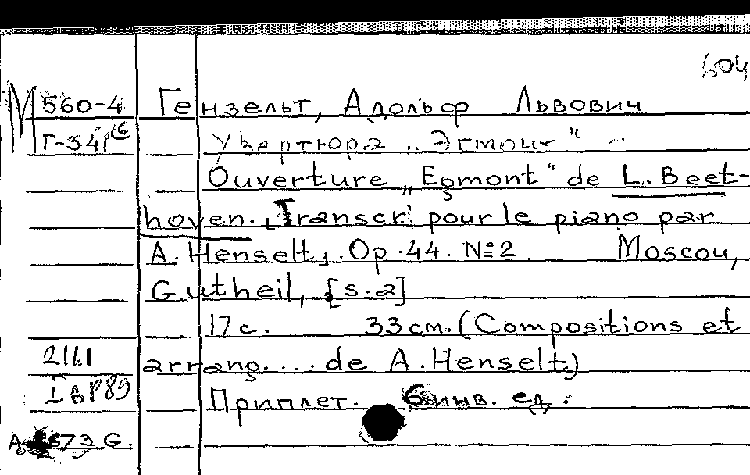 604
М 560-4 Гензельт, Адольф Львович
Г-34 Увертюра „Эгмонт“ -
Ouverture „Egmont“ de L. Beet-
hoven. Transcr. pour le piano par
A. Henselt. Op. 44. №2. Moscou,
Gutheil, [s.a]
17 с. 33 см. (Compositions et
2111 arrang.... de A. Henselt)
Приплет. 6 инв. ед.